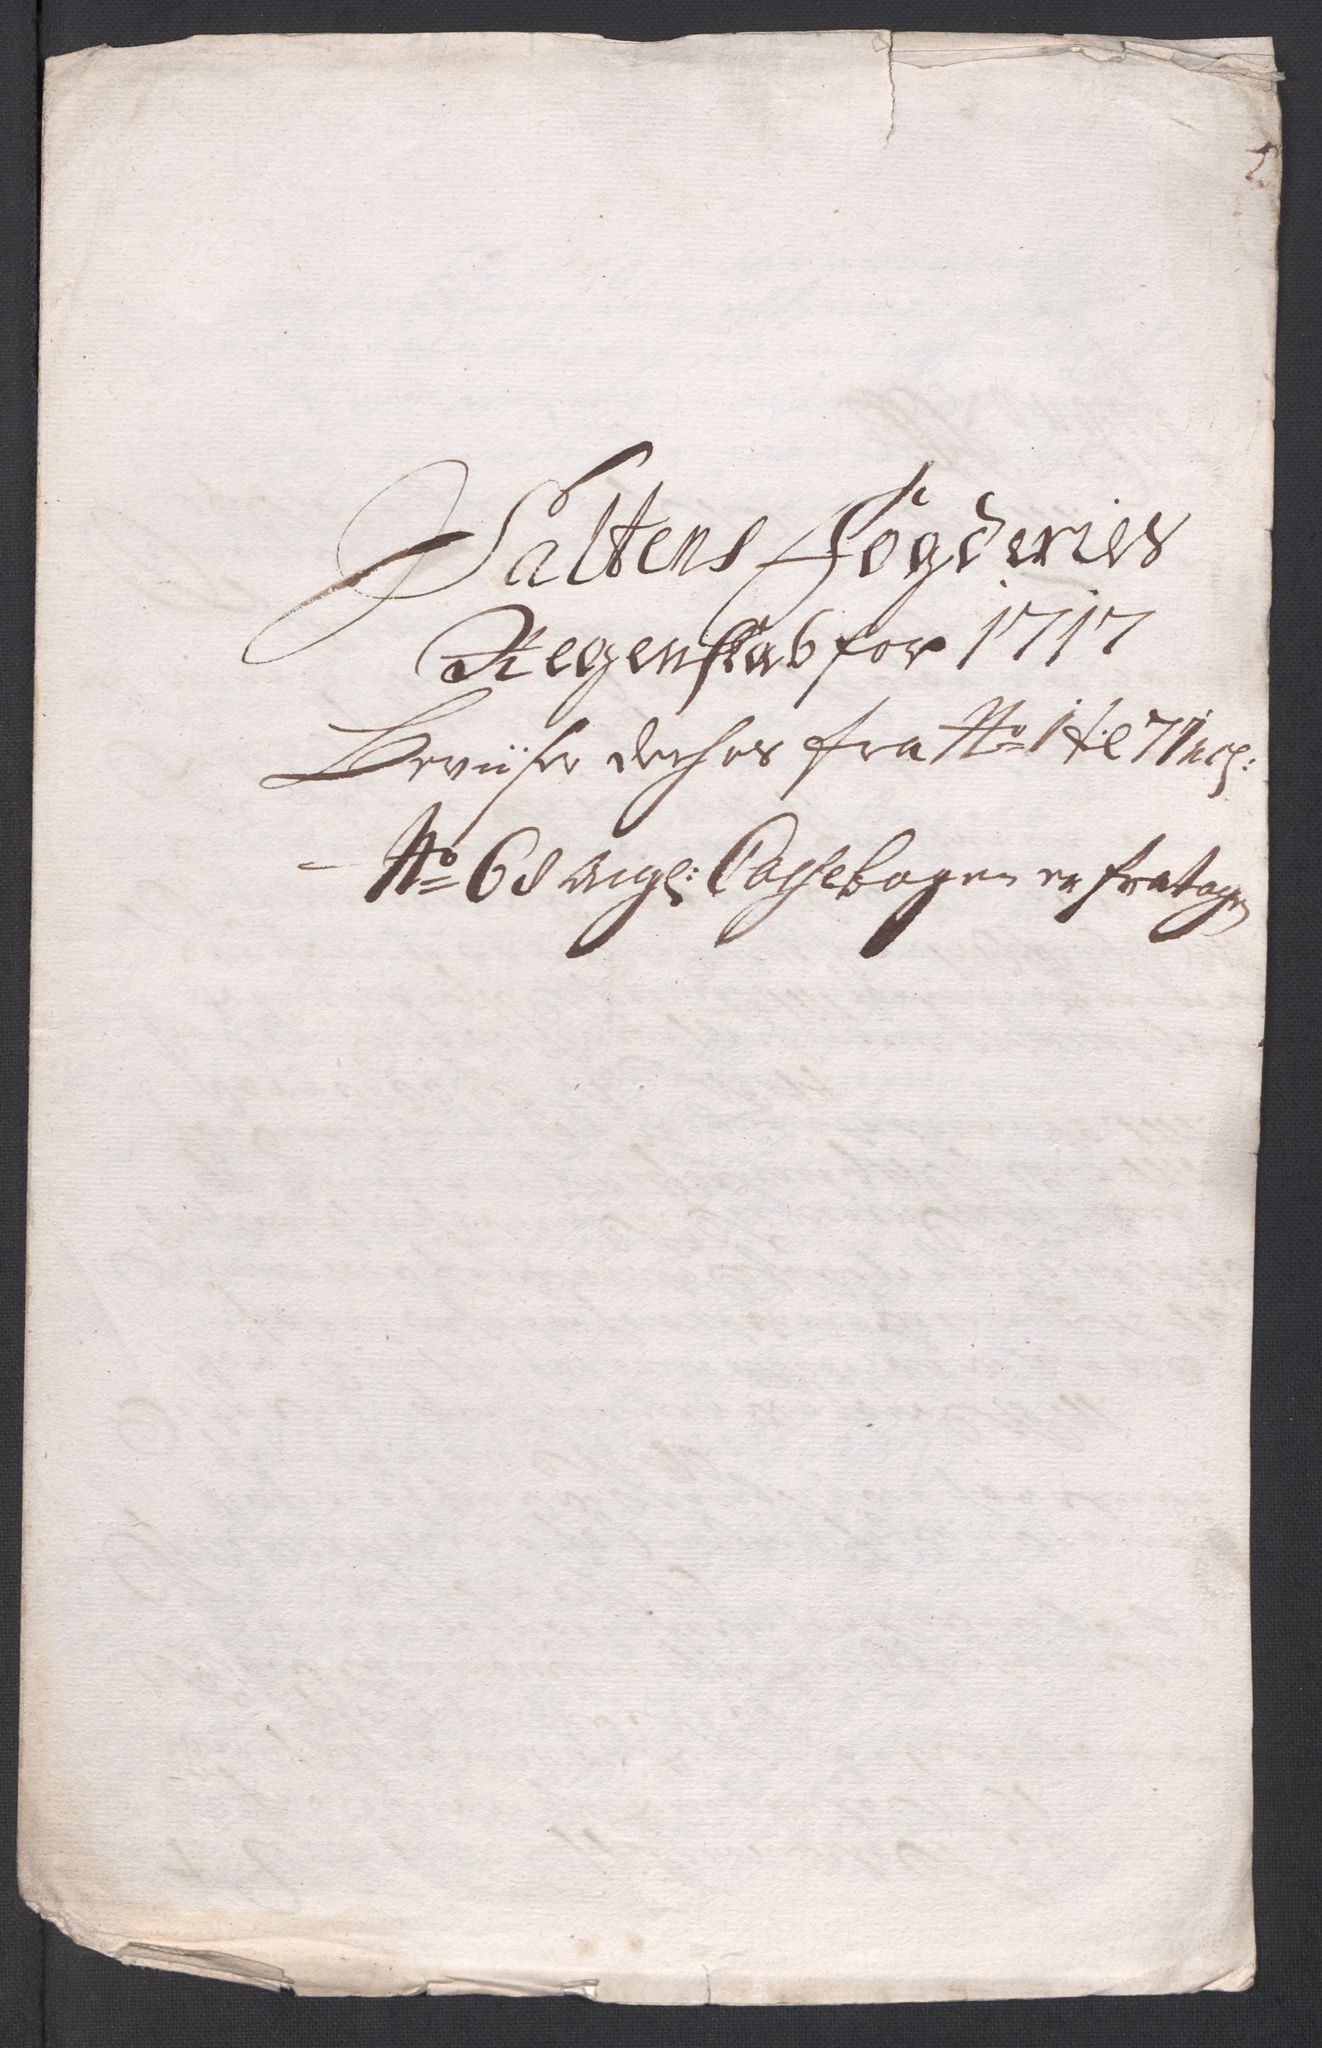 Saltens Fögderies
Regenskab for 1717
Beviiser dertil fra No 1 til 71 incl:
No 68 Cassebogen er fratagen